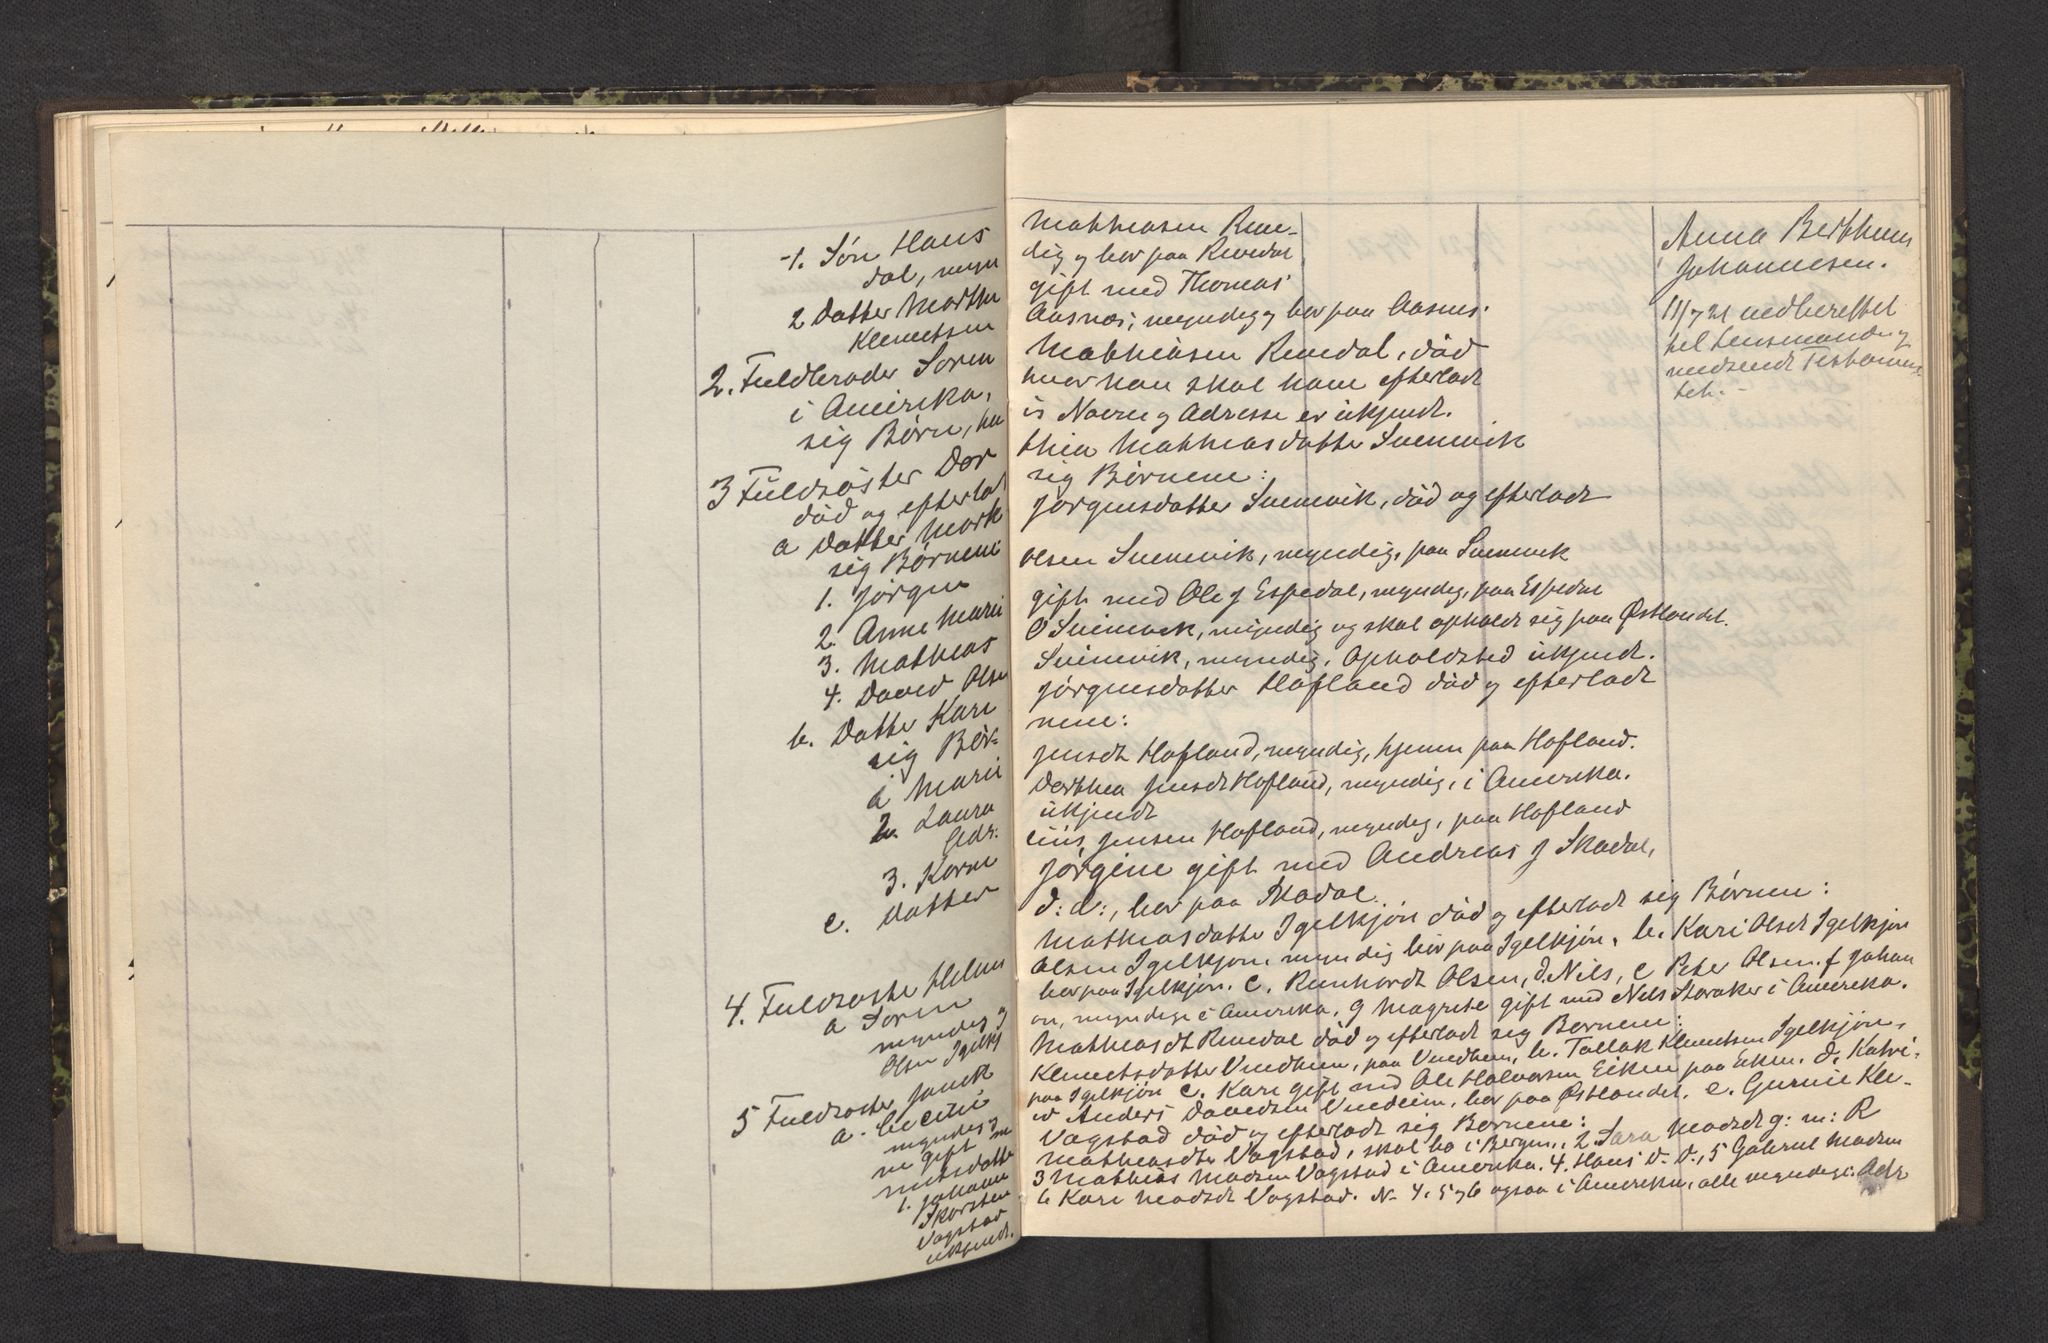 -1. Søn Hans
dal, myn
2 Datter Martha
Klemetsen
2. Fuldbroder Soren
i Amerika,
sig Børn, hv
3 Fuldsøster Dor
død og efterlod
a Datter Mark
sig Børnene:
1. Jørgen
2. Anne Marie
3. Mathias
4. David Olsen
b. Datter Kari
sig Bør-
a Marie
2. Laura
Adr:
3. Karen
c. Datter
4. Fuldsøster Helene
a Soren
myndig og
Olsen Igelkj
5 Fuldsøster Janek
a. Cecilie
myndig og
ne gift m
metsdatter
1. Johanne
Skarsten
Vagstad
ukjendt.
Mathiasen Rene-
dig og bor paa Renedal
gift med Thomas
Aasnæs, myndig og bor paa Aasnes.
Mathiasen Renedal, død
hvor han skal have efterladt
is Navne og Adresse er ukjendt.
thea Mathiasdatter Svennevik
sig Børnene:
Jørgensdatter Svennevik, død og efterladt
Olsen Svennevik, myndig, paa Svennevik
gift med Ole J Espedal, myndig, paa Espedal
O Svennevik, myndig og skal opholde sig paa Østlandet.
Svennevik, myndig, Opholdsted ukjendt.
Jørgensdatter Hafland død og efterladt
nene:
Jensdt Hafland, myndig, hjemme paa Hafland.
Dorthea Jensdt Hafland, myndig, i Amerika.
ukjendt
ius Jensen Hafland, myndig, paa Hafland
Jørgine gift med Andreas J Skadal,
d: d:, bor paa Skadal.
Mathiasdatter Igelkjøn død og efterladt sig Børnene:
Olsen Igelkjøn, myndig bor paa Igelkjøn, b. Kari Olsdt Igelkjøn
bor paa Igelkjøn. c. Reinhardt Olsen, d. Nils, e Peter Olsen. f Johan
on, myndige i Amerika, g Magrete gift med Nils Storaker i Amerika.
Mathiasdt Renedal død og efterladt sig Børnene:
Klemetsdatter Vindheim, paa Vindheim, b. Tallak Klemetsen Igelkjøn,
paa Igelkjøn c. Kari gift med Ole Halvorsen Eiken paa Eiken. d. Katri-
v Anders Davidsen Vindheim, bor paa Østlandet. e. Gurine Kle-
Vagstad død og efterladt sig Børnene:
Mathiasdtr Vagstad, skal bo i Bergen, 2. Sara Madsdt g: m: R
3 Mathias Madsen Vagstad i Amerika. 4. Hans d. d., 5 Gabriel Madsen
6 Kari Madsdt Vagstad. N. 4, 5 og 6 ogsaa i Amerika, alle myndige. Adr
Anna Berthine
Johannesen.
11/7 21 nedberettet
til Lensmanden og
medsendt Testamen-
tet.-